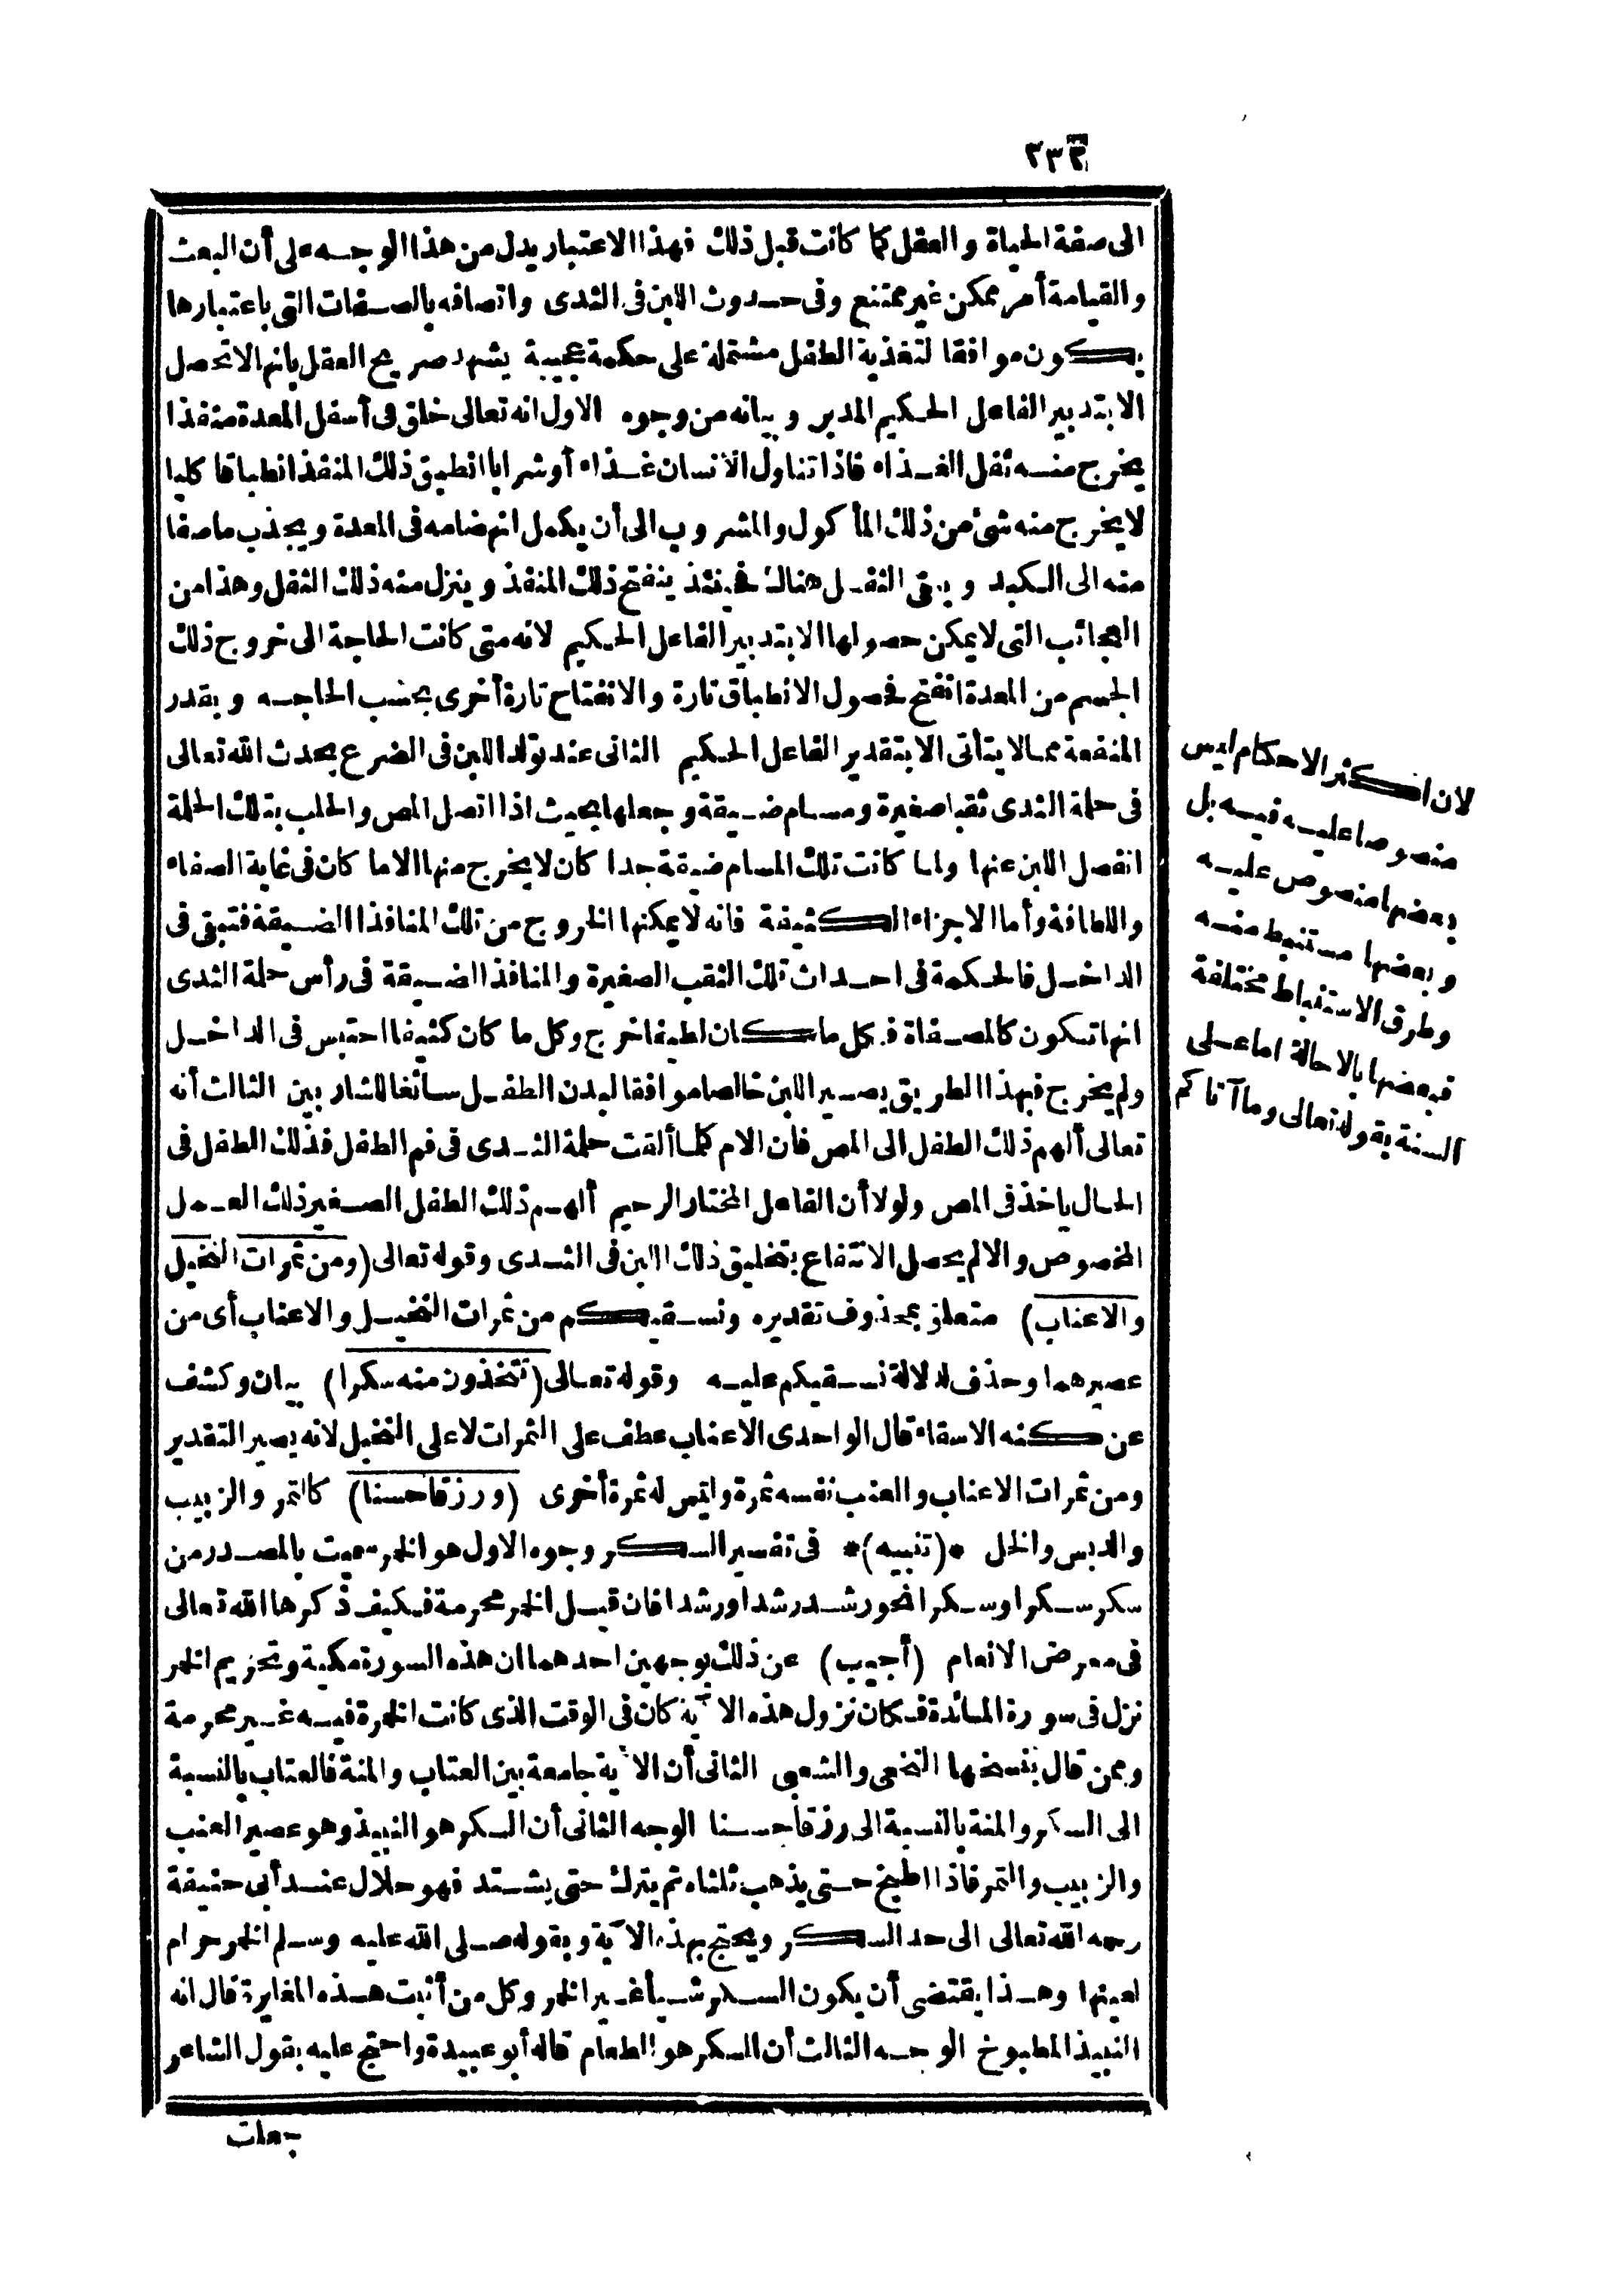 ٢٣٢
الى صفة الحياة والعقل كما كانت قبل ذلك فهذا الاعتبار يدل من هذا الوجه على أن البعث
والقيامة أمر ممكن غير ممتنع وفى حدوث اللبن فى الثدى واتصافه بالصفات التى باعتبارها
يكون موافقا لتغذية الطفل مشتملة على حكمة عجيبة يشهد صريح العقل بانها لا تحصل
الا بتدبير الفاعل الحكيم المدبر وبيانه من وجوه الاول انه تعالى خلق فى أسفل المعدة منفذا
يخرج منه ثفل الغذاء فاذا تناول الانسان غذاء أوشرابا انطبق ذلك المنفذ انطباقا كليا
لا يخرج منه شئ من ذلك المأكول والمشروب الى أن يكمل انهضامه فى المعدة ويجذب ماصفا
منه الى الكبد ويبقى الثفل هناك فحينئذ ينفتح ذلك المنفذ وينزل منه ذلك الثفل وهذا من
العجائب التى لا يمكن حصولها الا بتدبير الفاعل الحكيم لانه متى كانت الحاجة الى خروج ذلك
الجسم من المعدة انفتح فحصول الانطباق تارة والانفتاح تارة أخرى بحسب الحاجه وبقدر
المنفعة مما لا يتأتى الا بتقدير الفاعل الحكيم الثانى عند تولد اللبن فى الضرع يحدث الله تعالى
فى حلمة الثدى ثقبا صغيرة ومسام ضيقة وجعلها بحيث اذا اتصل المص والحلب بتلك الحلمة
انفصل اللبن عنها ولما كانت تلك المسام ضيقة جدا كان لا يخرج منها الا ما كان فى غاية الصفاء
واللطافة وأما الاجزاء الكثيفة فانه لا يمكنها الخروج من تلك المنافذ الضيقة فتبقى فى
الداخل فالحكمة فى احداث تلك الثقب الصغيرة والمنافذ الضيقة فى رأس حلمة الثدى
انها تكون كالمصفاة فكل ما كان لطيفا خرج وكل ما كان كثيفا احتبس فى الداخل
ولم يخرج فبهذا الطريق يصير اللبن خالصا موافقا لبدن الطفل سائغا للشاربين الثالث أنه
تعالى ألهم ذلك الطفل الى المص فان الام كلما ألقت حلمة الثدى فى فم الطفل فذلك الطفل فى
الحال ياخذ فى المص ولولا أن الفاعل المختار الرحيم ألهم ذلك الطفل الصغير ذلك العمل
المخصوص والا لم يحصل الانتفاع بتخليق ذلك اللبن فى الثدى وقوله تعالى (ومن ثمرات النخيل
والاعناب) متعلق بمحذوف تقديره ونسقيكم من ثمرات النخيل والاعناب أى من
عصيرهما وحذف لدلالة نسقيكم عليه وقوله تعالى (تتخذون منه سكرا) بيان وكشف
عن كنه الاسقاء قال الواحدى الاعناب عطف على الثمرات لا على النخيل لانه يصير التقدير
ومن ثمرات الاعناب والعنب نفسه ثمرة وليس له ثمرة أخرى (ورزقا حسنا) كالتمر والزبيب
والدبس والخل *(تنبيه)* فى تفسير السكر وجوه الاول هو الخمر سميت بالمصدر من
سكر سكرا وسكرا نحو رشد رشدا ورشدا فان قيل الخمر محرمة فكيف ذكرها الله تعالى
فى معرض الانعام (أجيب) عن ذلك بوجهين احدهما ان هذه السورة مكية وتحريم الخمر
نزل فى سورة المائدة فكان نزول هذه الآية كان فى الوقت الذى كانت الخمرة فيه غير محرمة
وممن قال بنسخها النخعى والشعبى الثانى أن الآية جامعة بين العتاب والمنة فالعتاب بالنسبة
الى السكر والمنة بالنسبة الى رزقا حسنا الوجه الثانى أن السكر هو النبيذ وهو عصير العنب
والزبيب والتمر فاذا اطبخ حتى يذهب ثلثاه ثم يترك حتى يشتد فهو حلال عند أبى حنيفة
رحمه الله تعالى الى حد السكر ويحتج بهذه الآية وبقوله صلى الله عليه وسلم الخمر حرام
لعينها وهذا يقتضى أن يكون السكر شيأ غير الخمر وكل من أثبت هذه المغايرة قال انه
النبيذ المطبوخ الوجه الثالث أن السكر هو الطعام قاله أبو عبيدة واحتج عليه بقول الشاعر
جعلت
لان اكثر الاحكام ليس
منصوصا عليه فيه بل
بعضها منصوص عليه
وبعضها مستنبط منه
وطرق الاستنباط مختلفة
فبعضها بالاحالة اما على
السنة بقوله تعالى وما آتاكم